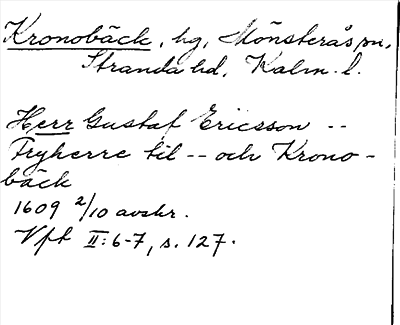 Kronobäck, hg, Mönsterås sn,
Stranda hd, Kalm. l.
Herr Gustaf Ericsson --
Fryherre til -- och Krono-
bäck
1609 2/10 avskr.
Vft II:6-7, s. 127.